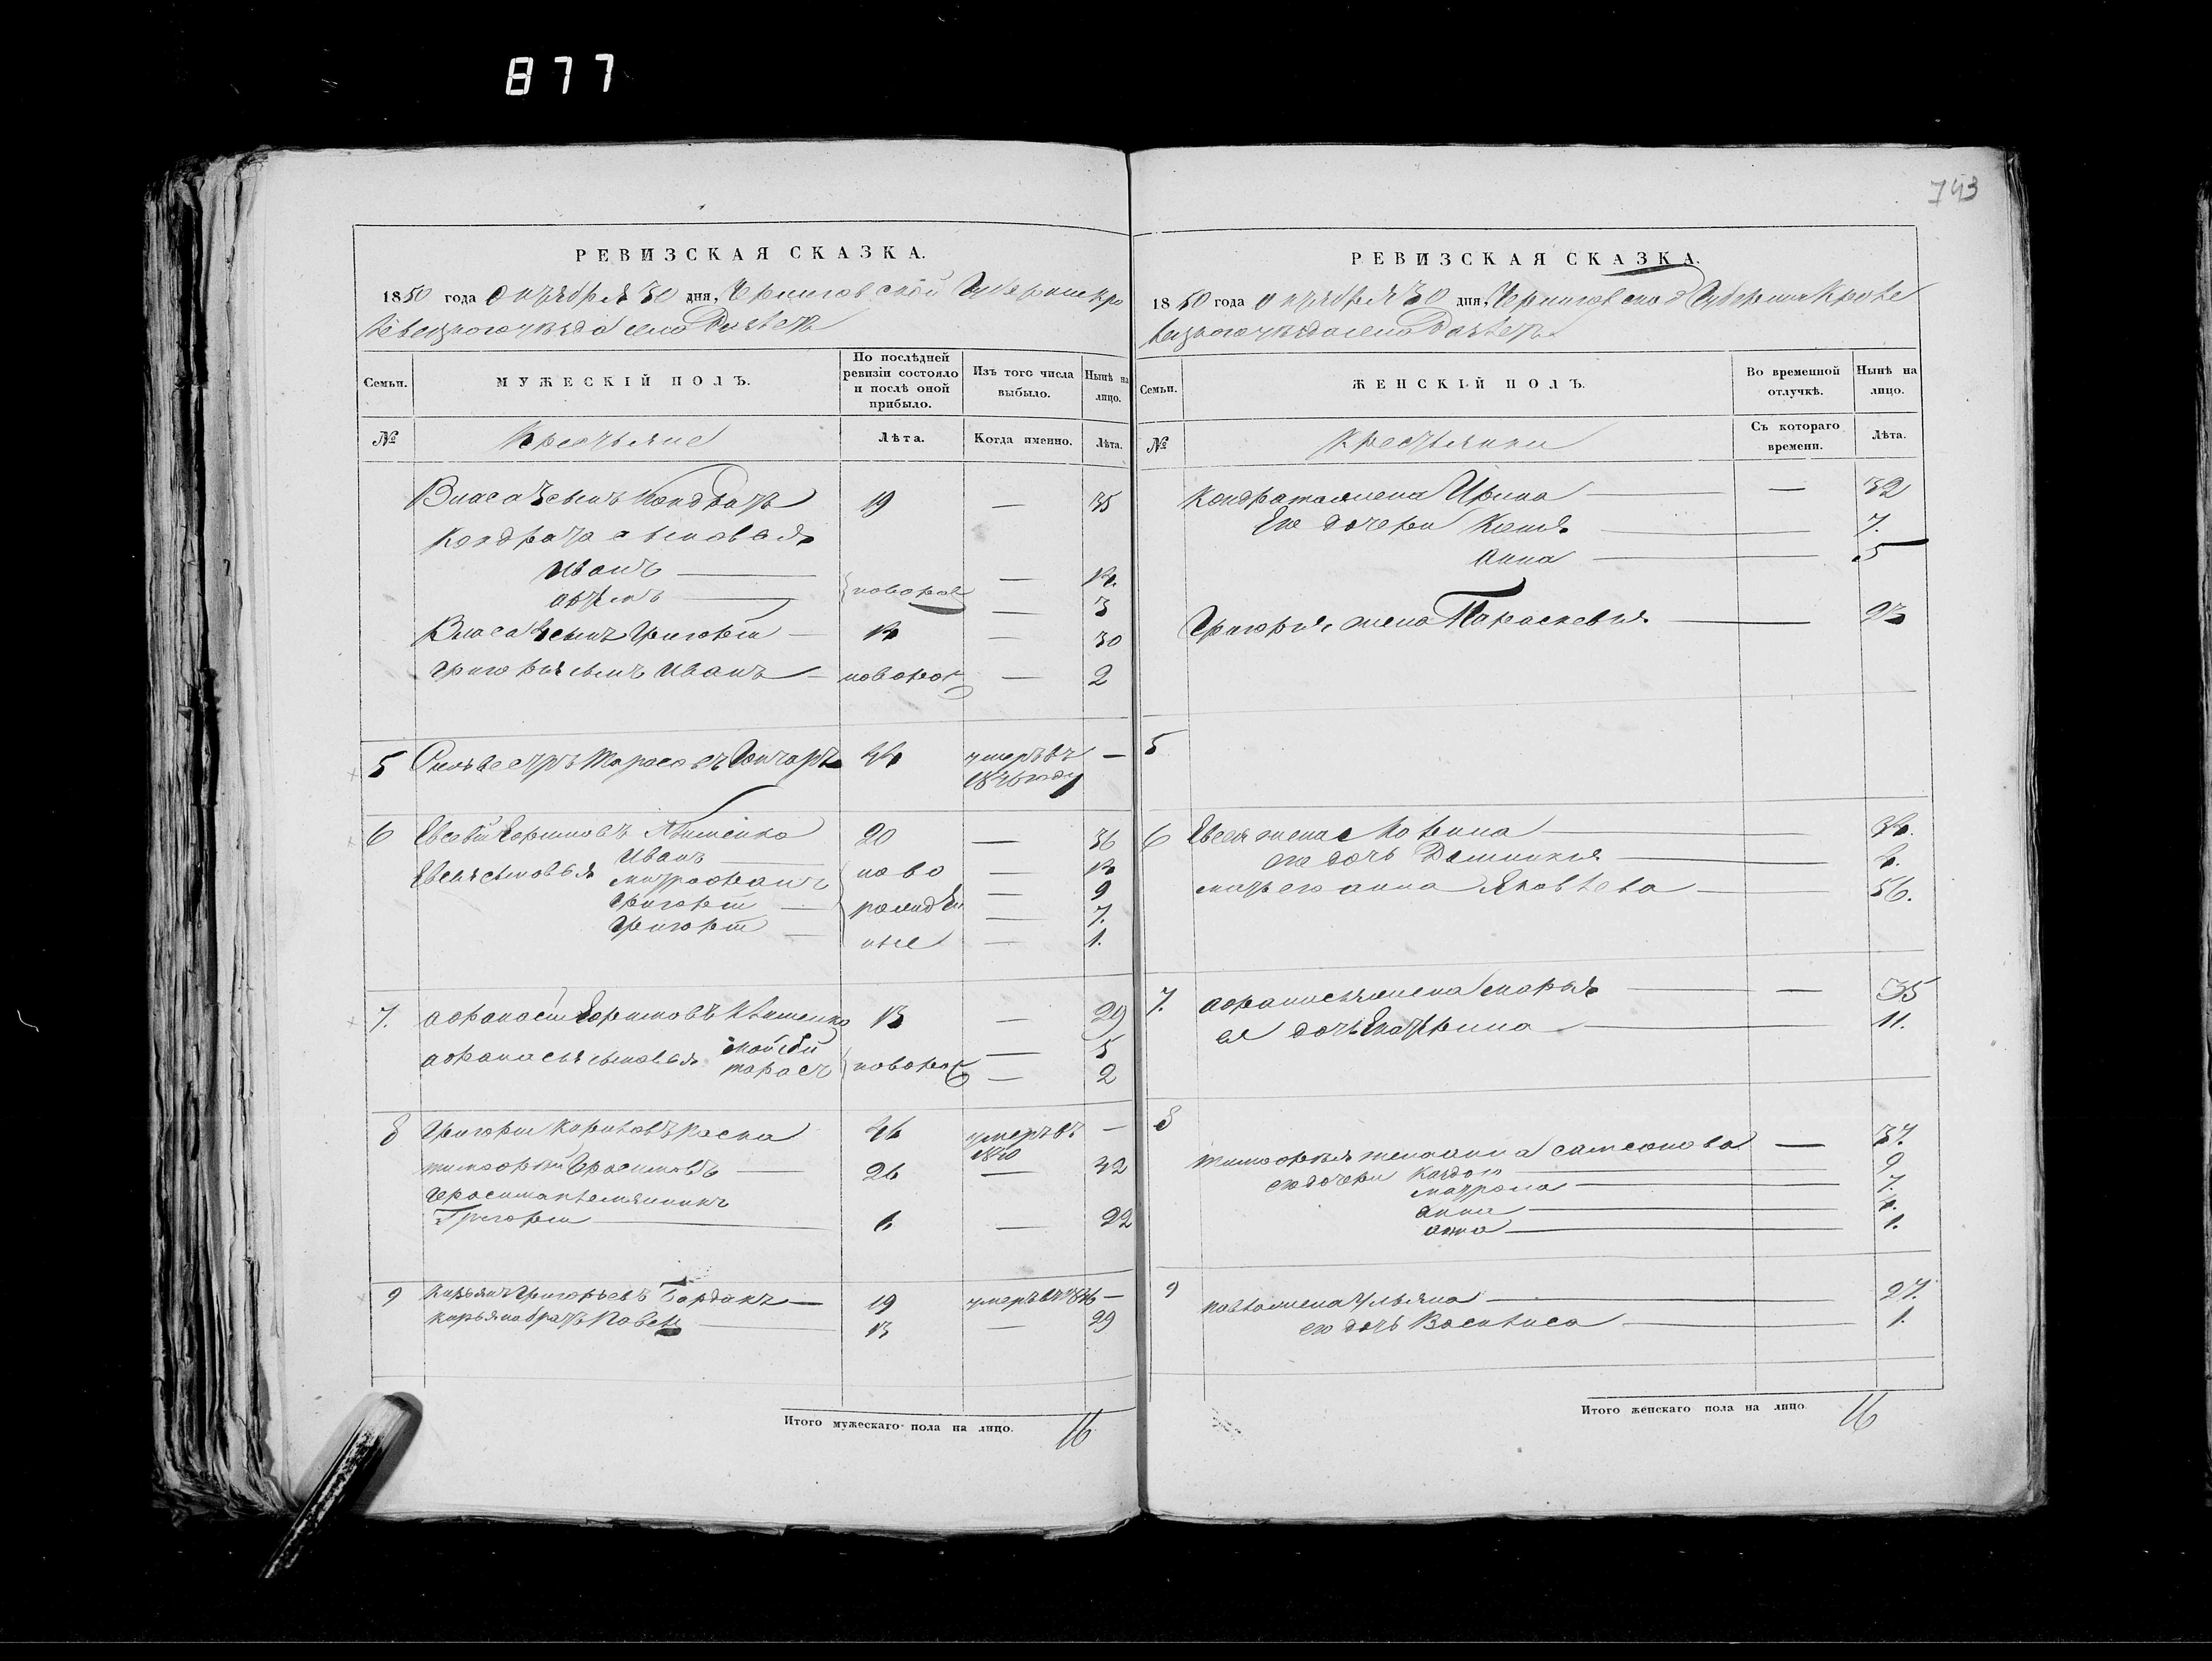 877
743
РЕВИЗСКАЯ СКАЗКА.
1850 года октября 30 дня, Черниговской Губернии Кро
левецкого уѣзда села
Семьи. МУЖЕСКІЙ ПОЛЪ. По послѣдней ревизіи состояло и послѣ оной прибыло. Изъ того числа выбыло. Нынѣ на лицо.
№ Крестьяне Лѣта. Когда именно. Лѣта.
Власа 3 сынъ Кондратъ 19 — 35
Кондрата сыновья
Иванъ — новорож — 14.
— 3
Власа 4 сынъ Григорій — 14 — 30
Григорія сынъ Иванъ — новорож — 2
5 Тарасовъ Гончаръ 44 умеръ въ —
1846 году
6 Евсѣй Ефимовъ 20 — 36
Евсѣя сыновья Иванъ — ново —
Митрофанъ — 9
Григорій — рожден — 7.
Григорій — ные — 1.
7. Афанасій Ефимовъ 13 — 29
Афанасья сыновья Мойсѣй — 5
Тарасъ новорож — 2
8 Григорій Карповъ 46 умеръ въ —
1840
Тимофѣй Герасимовъ — 26 — 42
Герасима племянникъ
Григорій — 6 — 22
9 Кирьянъ Григорьевъ Бардакъ — 19 умеръ въ 1846 —
Кирьяна братъ Павелъ — 13 — 29
Итого мужескаго пола на лицо. 16
РЕВИЗСКАЯ СКАЗКА.
1850 года октября 30 дня, Черниговской Губернии Кроле
вецкого уѣзда села
Семьи. ЖЕНСКІЙ ПОЛЪ. Во временной отлучкѣ. Нынѣ на лицо.
№ Крестьянки Съ котораго времени. Лѣта.
Кондрата жена Ирина — — 32
Его дочери — 7.
Анна — 5
Григорія жена Параскевія — 23
5
6 Евсея жена — 34.
его дочь Домникія — 4.
мать его Анна Яковлева — 56.
7. Афанасья жена Марья — — 35
ея дочь Екатерина — 11.
8
Тимофѣя жена Анна Самсонова — 37.
его дочери — 9
Матрона — 7.
Анна — 4.
Анна — 1.
9
Павла жена Ульяна — 27.
его дочь Василиса — 1.
Итого женскаго пола на лицо 16